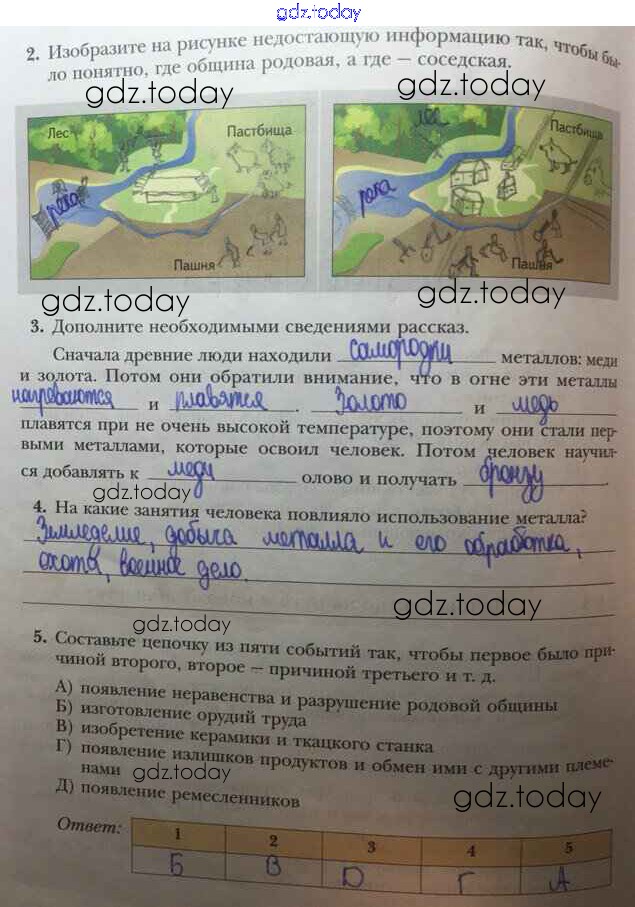 gdz.today
2. Изобразите на рисунке недостающую информацию так, чтобы бы-
ло понятно, где община родовая, а где — соседская.
gdz.today gdz.today
Лес Пастбища лес Пастбища
река река
Пашня Пашня
gdz.today gdz.today
3. Дополните необходимыми сведениями рассказ.
Сначала древние люди находили самородки металлов: меди
и золота. Потом они обратили внимание, что в огне эти металлы
нагреваются и плавятся. Золото и медь
плавятся при не очень высокой температуре, поэтому они стали пер-
выми металлами, которые освоил человек. Потом человек научил-
ся добавлять к меди олово и получать бронзу.
gdz.today
4. На какие занятия человека повлияло использование металла?
Земледелие, добыча металла и его обработка,
охоты, военное дело.
gdz.today
gdz.today
5. Составьте цепочку из пяти событий так, чтобы первое было при-
чиной второго, второе — причиной третьего и т. д.
А) появление неравенства и разрушение родовой общины
Б) изготовление орудий труда
В) изобретение керамики и ткацкого станка
Г) появление излишков продуктов и обмен ими с другими племе-
нами gdz.today
Д) появление ремесленников
gdz.today
Ответ: 1 2 3 4 5
Б В D Г А
gdz.today